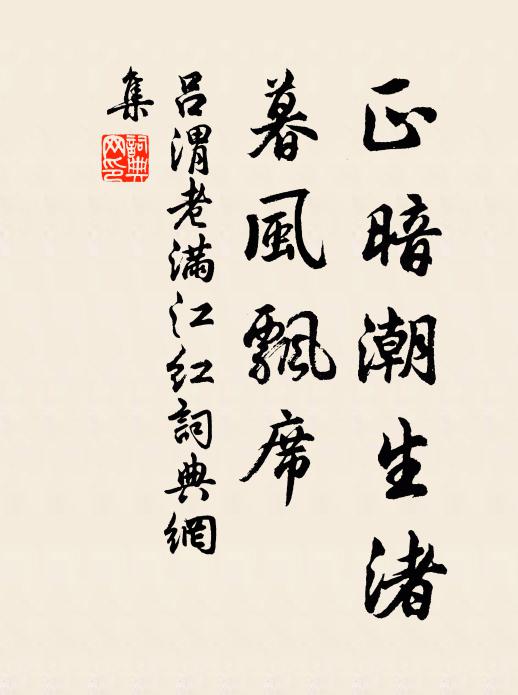 正暗潮生渚
暮風飄席
呂渭老滿江红詞典網
集
詞典網印